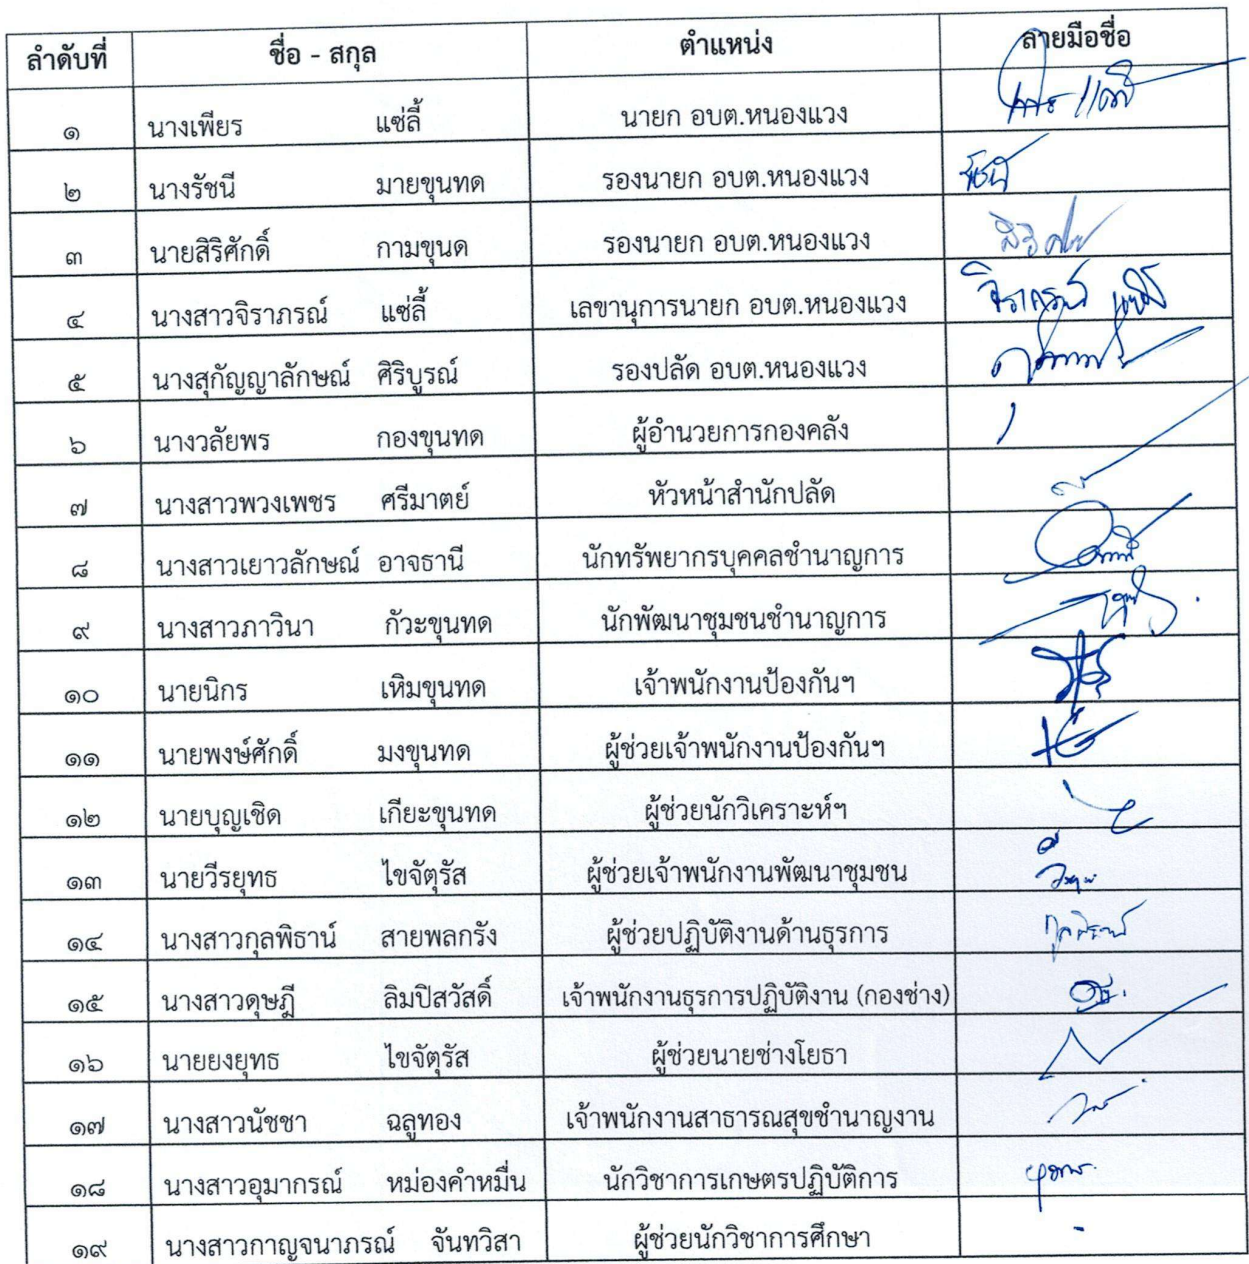 ลำดับที่ ชื่อ - สกุล ตำแหน่ง ลายมือชื่อ
๑ นางเพียร แซ่ลี้ นายก อบต.หนองแวง
๒ นางรัชนี มายขุนทด รองนายก อบต.หนองแวง รัชนี
๓ นายสิริศักดิ์ กามขุนด รองนายก อบต.หนองแวง
๔ นางสาวจิราภรณ์ แซ่ลี้ เลขานุการนายก อบต.หนองแวง จิราภรณ์ แซ่ลี้
๕ นางสุกัญญาลักษณ์ ศิริบูรณ์ รองปลัด อบต.หนองแวง
๖ นางวลัยพร กองขุนทด ผู้อำนวยการกองคลัง
๗ นางสาวพวงเพชร ศรีมาตย์ หัวหน้าสำนักปลัด
๘ นางสาวเยาวลักษณ์ อาจธานี นักทรัพยากรบุคคลชำนาญการ
๙ นางสาวภาวินา กัวะขุนทด นักพัฒนาชุมชนชำนาญการ
๑๐ นายนิกร เหิมขุนทด เจ้าพนักงานป้องกันฯ
๑๑ นายพงษ์ศักดิ์ มงขุนทด ผู้ช่วยเจ้าพนักงานป้องกันฯ
๑๒ นายบุญเชิด เกียะขุนทด ผู้ช่วยนักวิเคราะห์ฯ
๑๓ นายวีรยุทธ ไขจัตุรัส ผู้ช่วยเจ้าพนักงานพัฒนาชุมชน
๑๔ นางสาวกุลพิธาน์ สายพลกรัง ผู้ช่วยปฏิบัติงานด้านธุรการ กุลพิธาน์
๑๕ นางสาวดุษฎี ลิมปิสวัสดิ์ เจ้าพนักงานธุรการปฏิบัติงาน (กองช่าง)
๑๖ นายยงยุทธ ไขจัตุรัส ผู้ช่วยนายช่างโยธา
๑๗ นางสาวนัชชา ฉลูทอง เจ้าพนักงานสาธารณสุขชำนาญงาน
๑๘ นางสาวอุมากรณ์ หม่องคำหมื่น นักวิชาการเกษตรปฏิบัติการ
๑๙ นางสาวกาญจนาภรณ์ จันทวิสา ผู้ช่วยนักวิชาการศึกษา -